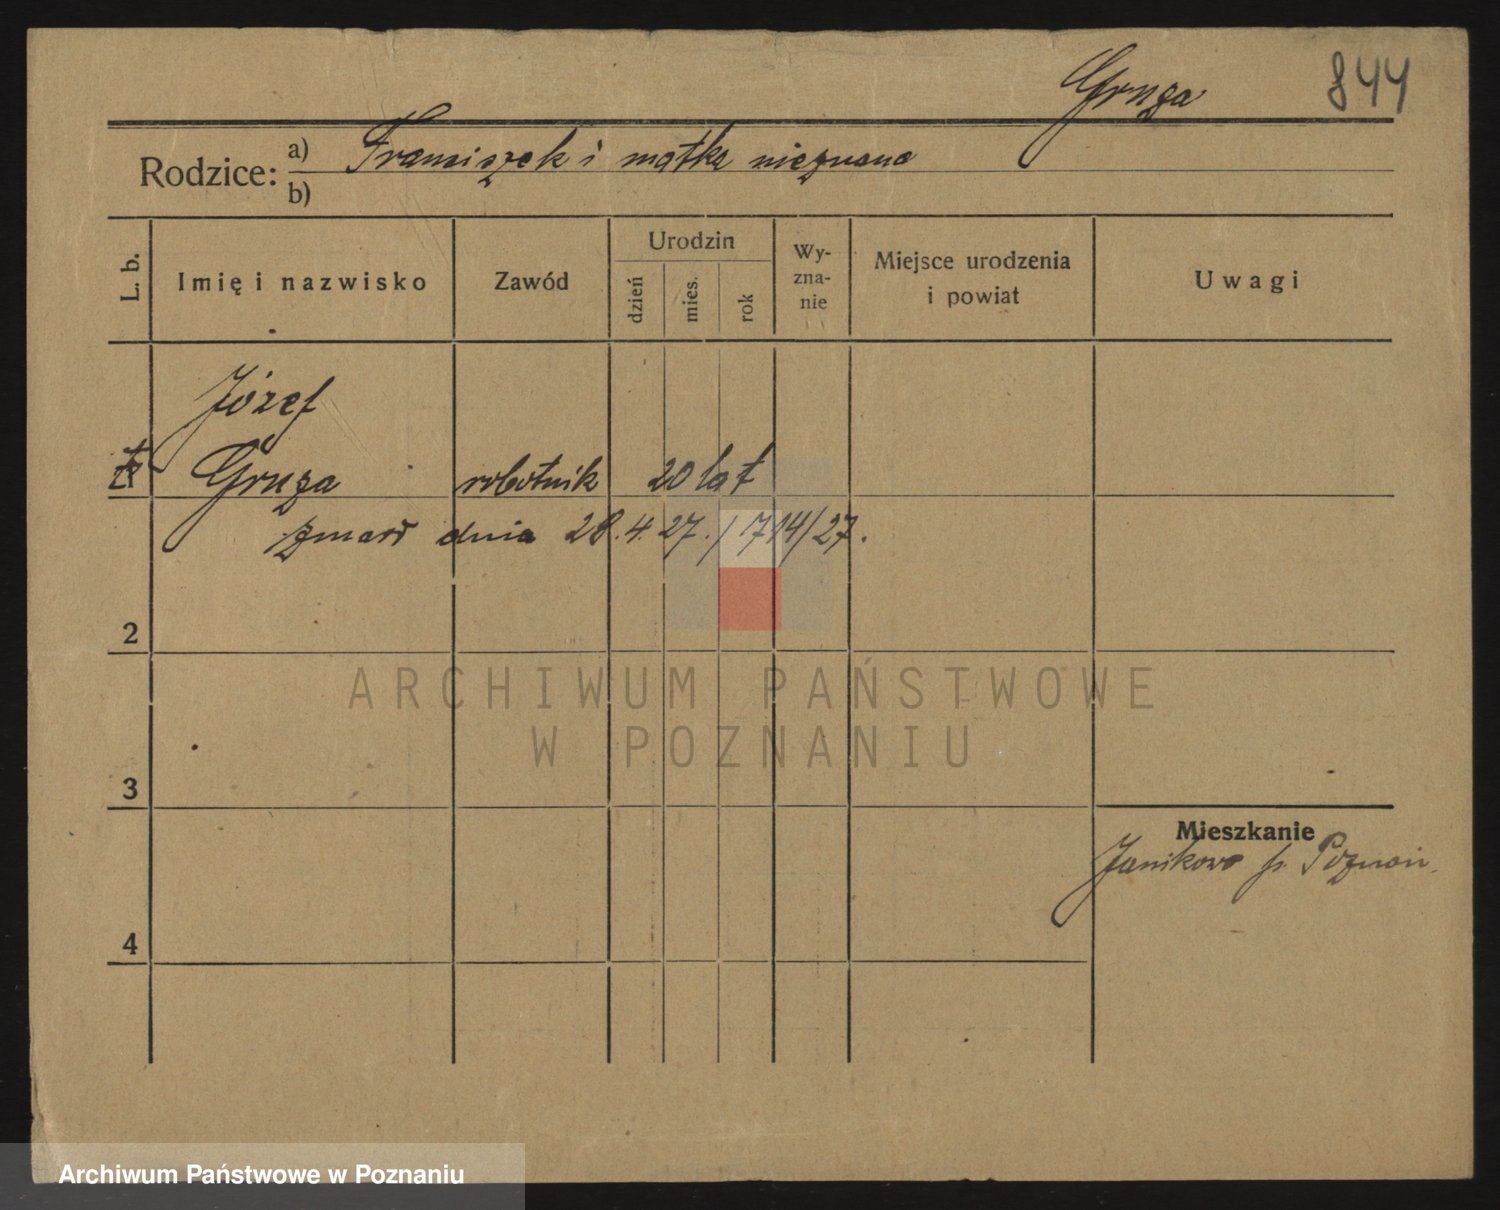 Gruza 844
Rodzice: a) Franciszek i matka nieznana
b)
L. b. Imię i nazwisko Zawód Urodzin dzień mies. rok Wy-zna-nie Miejsce urodzenia i powiat Uwagi
Józef
Gruza robotnik 20 lat
zmarł dnia 28.4.27. / 714/27.
2
3
Mieszkanie
Janikowo p. Poznań.
4
ARCHIWUM PAŃSTWOWE
W POZNANIU
Archiwum Państwowe w Poznaniu